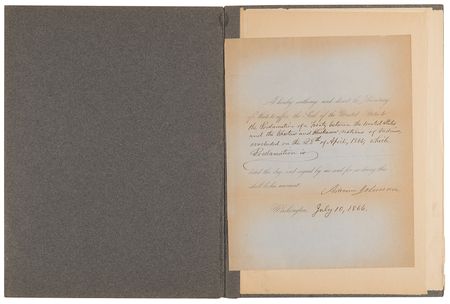 I hereby authorize and direct the Secretary
of State to affix the Seal of the United States to
the Proclamation of a treaty between the United States
and the Choctaw and Chickasaw nations of Indians,
concluded on the 28th of April, 1866; which
Proclamation is
dated this day, and signed by me and for so doing this
shall be his warrant.
Andrew Johnson
Washington, July 10, 1866.